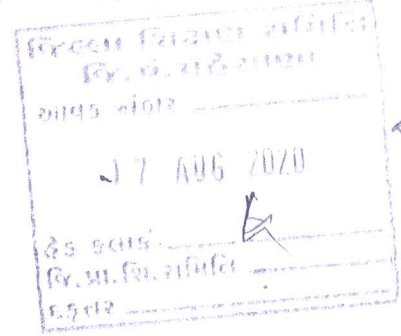 જિલ્લા શિક્ષણ સમિતિ
જિ. પં. મહેસાણા
આવક નંબર
17 AUG 2020
હેડ ક્લાર્ક
જિ.પ્રા.શિ.સમિતિ
દફતર